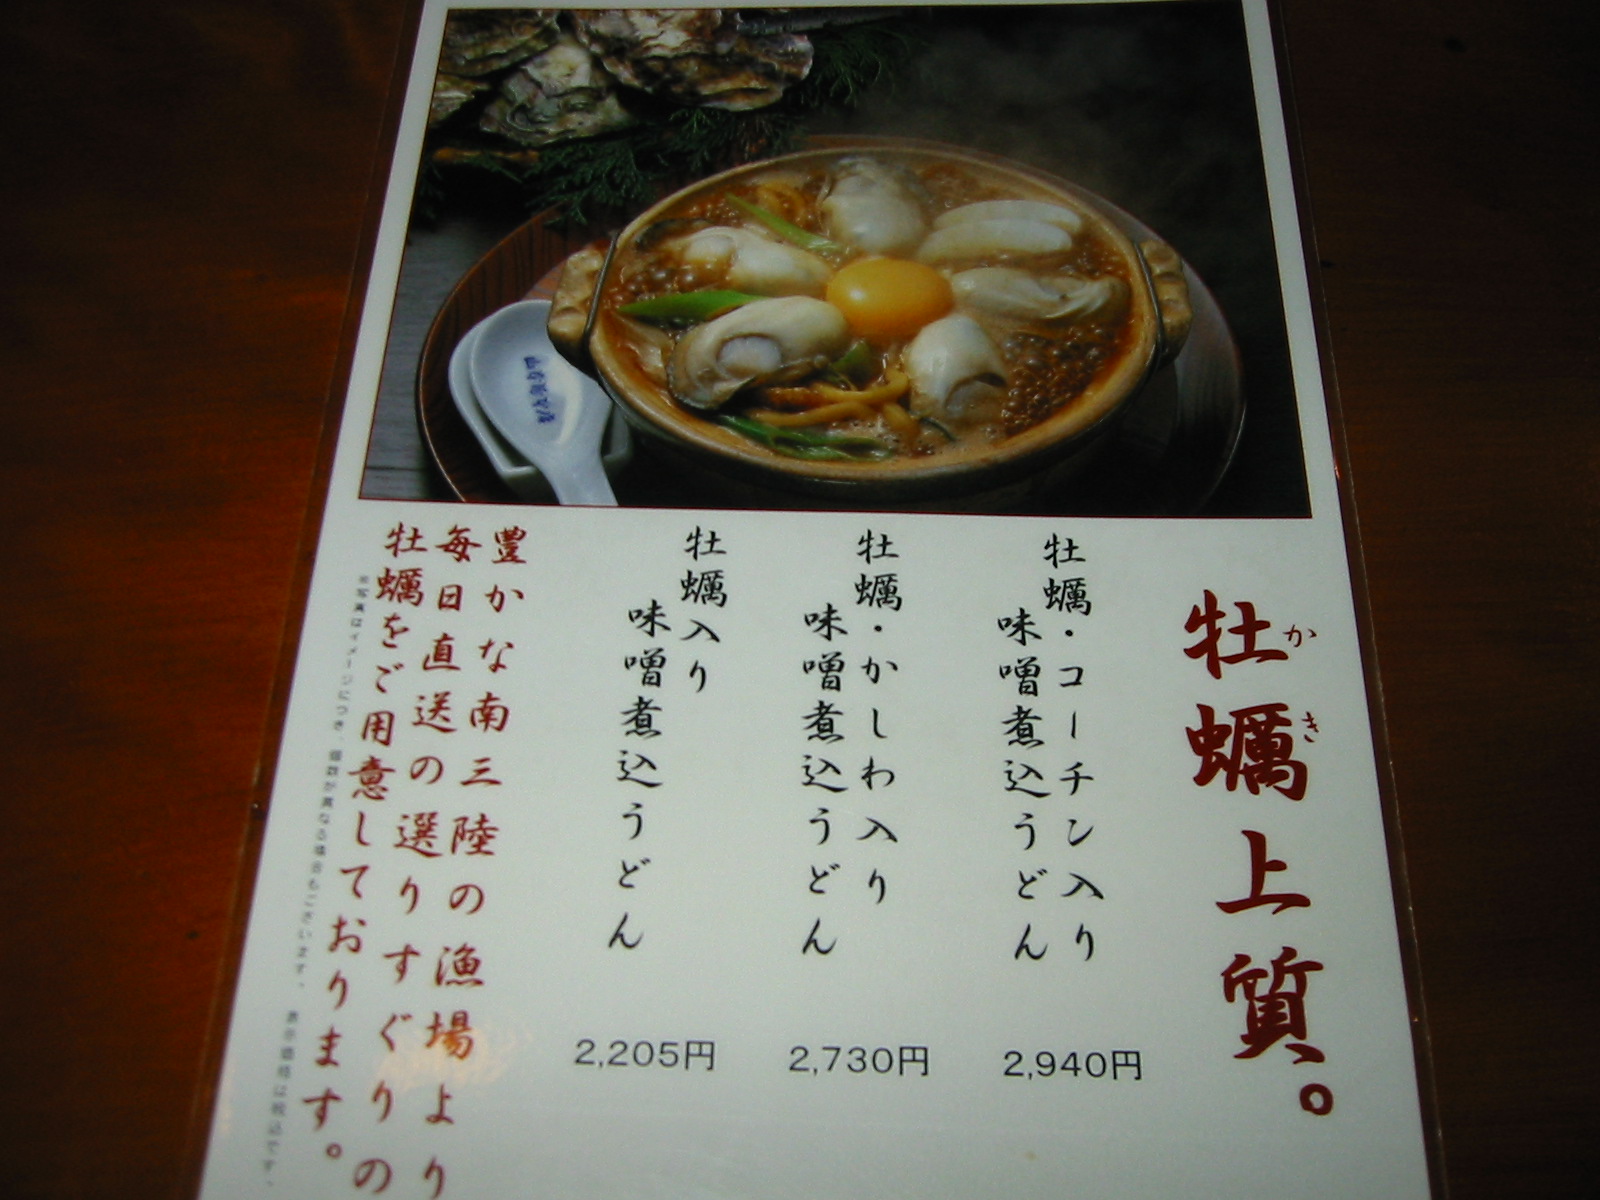 牡蠣上質。
かき
牡蠣・コーチン入り
味噌煮込うどん
2,940円
牡蠣・かしわ入り
味噌煮込うどん
2,730円
牡蠣入り
味噌煮込うどん
2,205円
豊かな南三陸の漁場より
毎日直送の選りすぐりの
牡蠣をご用意しております。
※写真はイメージにつき、個数が異なる場合もございます。 表示価格は税込です。